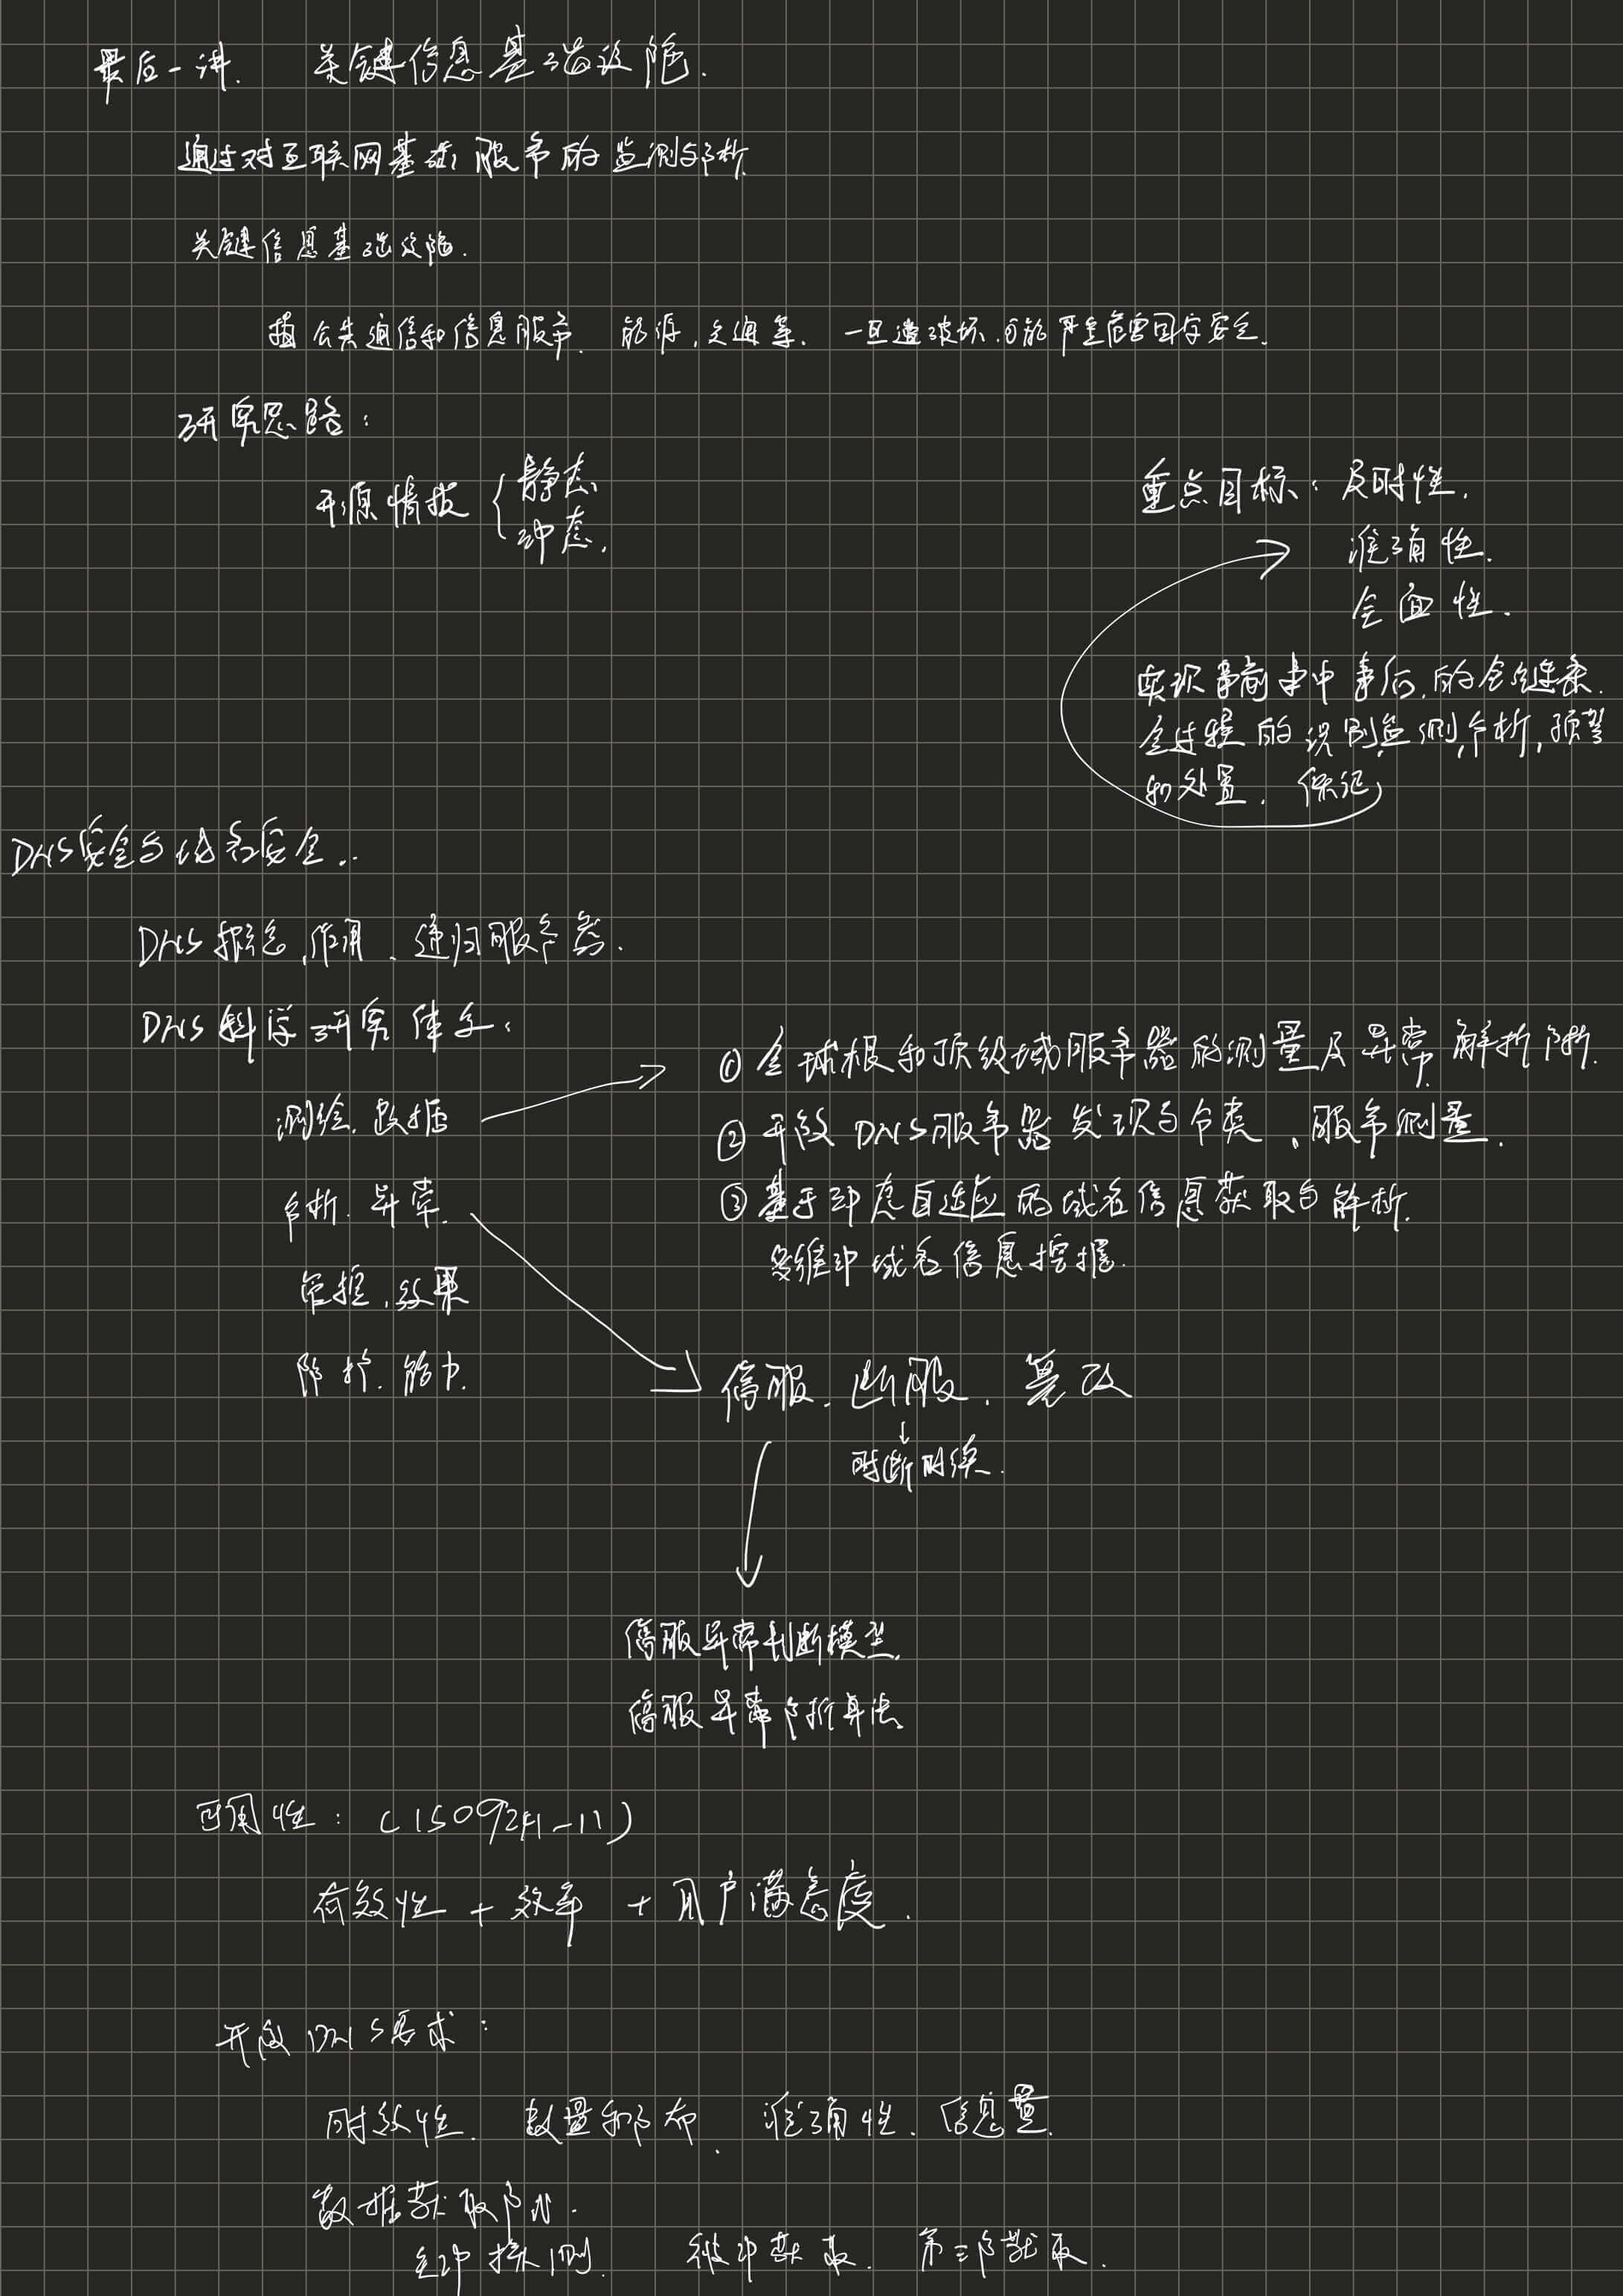 最后一讲. 关键信息基础设施.
通过对互联网基础服务的监测与分析
关键信息基础设施.
指公共通信和信息服务. 能源, 交通等. 一旦遭破坏, 可能严重危害国家安全.
研究思路:
开源情报 { 静态
动态.
重点目标: 及时性.
准确性.
全面性.
实现事前事中事后, 的全链条.
全过程的识别, 监测, 分析, 预警
和处置. 保证
DNS安全与域名安全..
DNS概念, 作用、递归服务器.
DNS科学研究体系:
测绘. 数据
① 全球根和顶级域服务器的测量及异常解析分析.
② 开放DNS服务器发现与分类、服务测量.
③ 基于动态自适应的域名信息获取与解析.
多维度域名信息挖掘.
分析. 异常.
管控. 效果
防护. 能力.
停服. 断服. 篡改
↓
时断时续.
停服异常判断模型.
停服异常分析算法
可用性: (ISO9241-11)
有效性 + 效率 + 用户满意度.
开放DNS要求:
时效性. 数量和分布. 准确性. 信息量.
数据获取方式.
主动探测. 被动获取. 第三方获取.